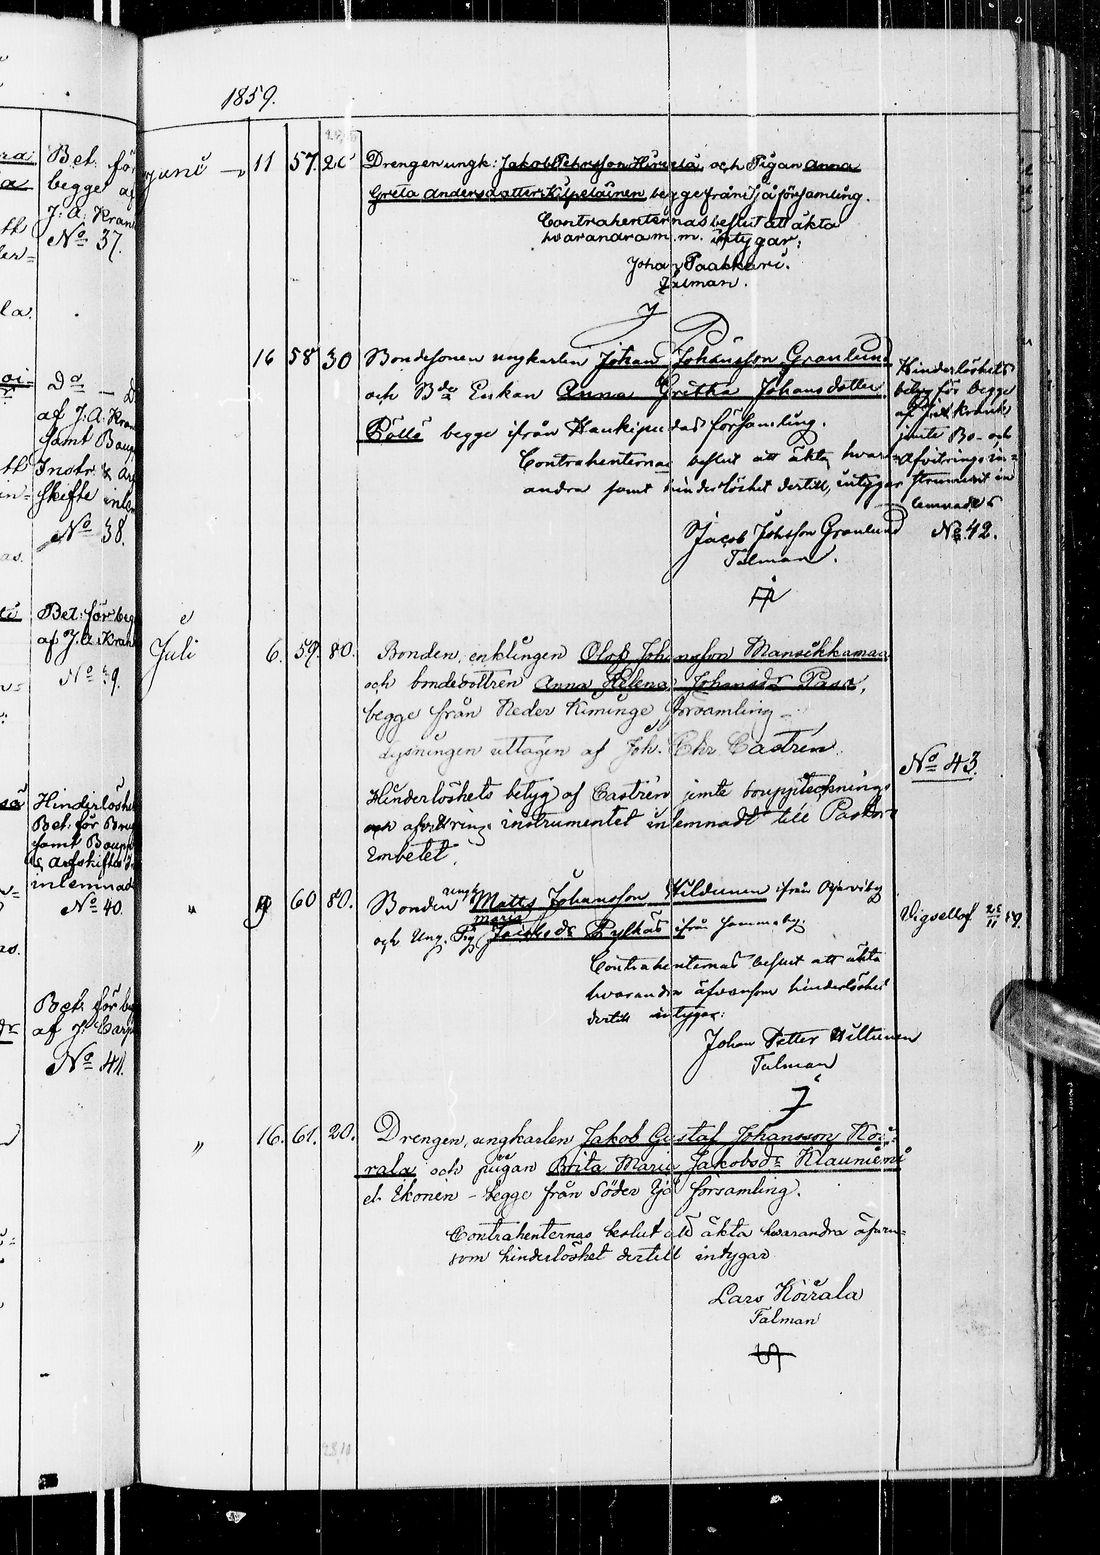 1859.
Juni 11 57. 20 Drengen ungk: Jakob Pehrsson Hirvelä och Pigan Anna
Greta Andersdotter Kilpeläinen begge från Ijå församling.
Contrahenternas beslut att äkta
hvarandra m. m. intygar:
Johan Paakkari.
Talman.
16 58 30 Bondesonen ungkarlen Johan Johansson Granlund
och Bde Enkan Anna Gretha Johansdotter
Pöllö begge ifrån Haukipudas församling.
Contrahenternas beslut att äkta hvar-
andra samt hinderlöshet dertill, intygar
Jacob Johsson Granlund
Talman.
Hinderlöshets
betyg för begge
af J.A. Krank
jemte Bo- och
Afvitrings in-
strument in
lemnades
No 42.
Juli 6. 59. 80. Bonden, enklingen Olof Johansson Manschkamaa
och bondedottren Anna Helena Johansdr Paso,
begge från Neder Kiminge församling
Lysningen uttagen af Joh. Chr Castrén.
Hinderlöshets betyg af Castrén jemte bouppteckning
och afvittrings instrumentet inlemnadt till Pastors
Embetet.
No 43.
" 9 60 80. Bonden ungk Matts Johansson Hildunen ifrån
och Ung. Pig Maria Jacobsdr Pylkäs ifrån samma by
Contrahenternas beslut att äkta
hvarandra äfvensom hinderlöshet
dertill intygar:
Johan Petter Hiltunen
Talman
Vigsellof 25/11 59.
" 16. 61. 20. Drengen, ungkarlen Jakob Gustaf Johansson Koi-
rala och pigan Brita Maria Jakobsdr Klauniemi
el. Ikonen - begge från Söder Ijå församling.
Contrahenternas beslut att äkta hvarandra äfven-
som hinderlöshet dertill intygar
Lars Koirala
Talman
Bet. för
begge af
J. A. Kran
No 37.
Do
af J. A. Kran
samt Boup
Instr. & Arf
skifte inlem
No 38.
Bet. för beg
af J. A. Kran
No 39.
Hinderlöshet
Bet. för Bru
samt Boupp
& Arfskifte I
inlemnad
No 40.
Bet. för be
af J. Carp
No 41.